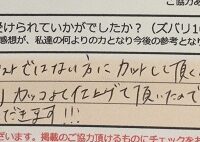 ご協力あ
受けられていかがでしたか？（ズバリ10
感想が、私達の何よりの力となり今後の参考となり
ではない方にカットして頂く
カッコよく仕上げて頂いたので
できます!!!
ざいます。掲載のご協力頂けるものにチェックをお